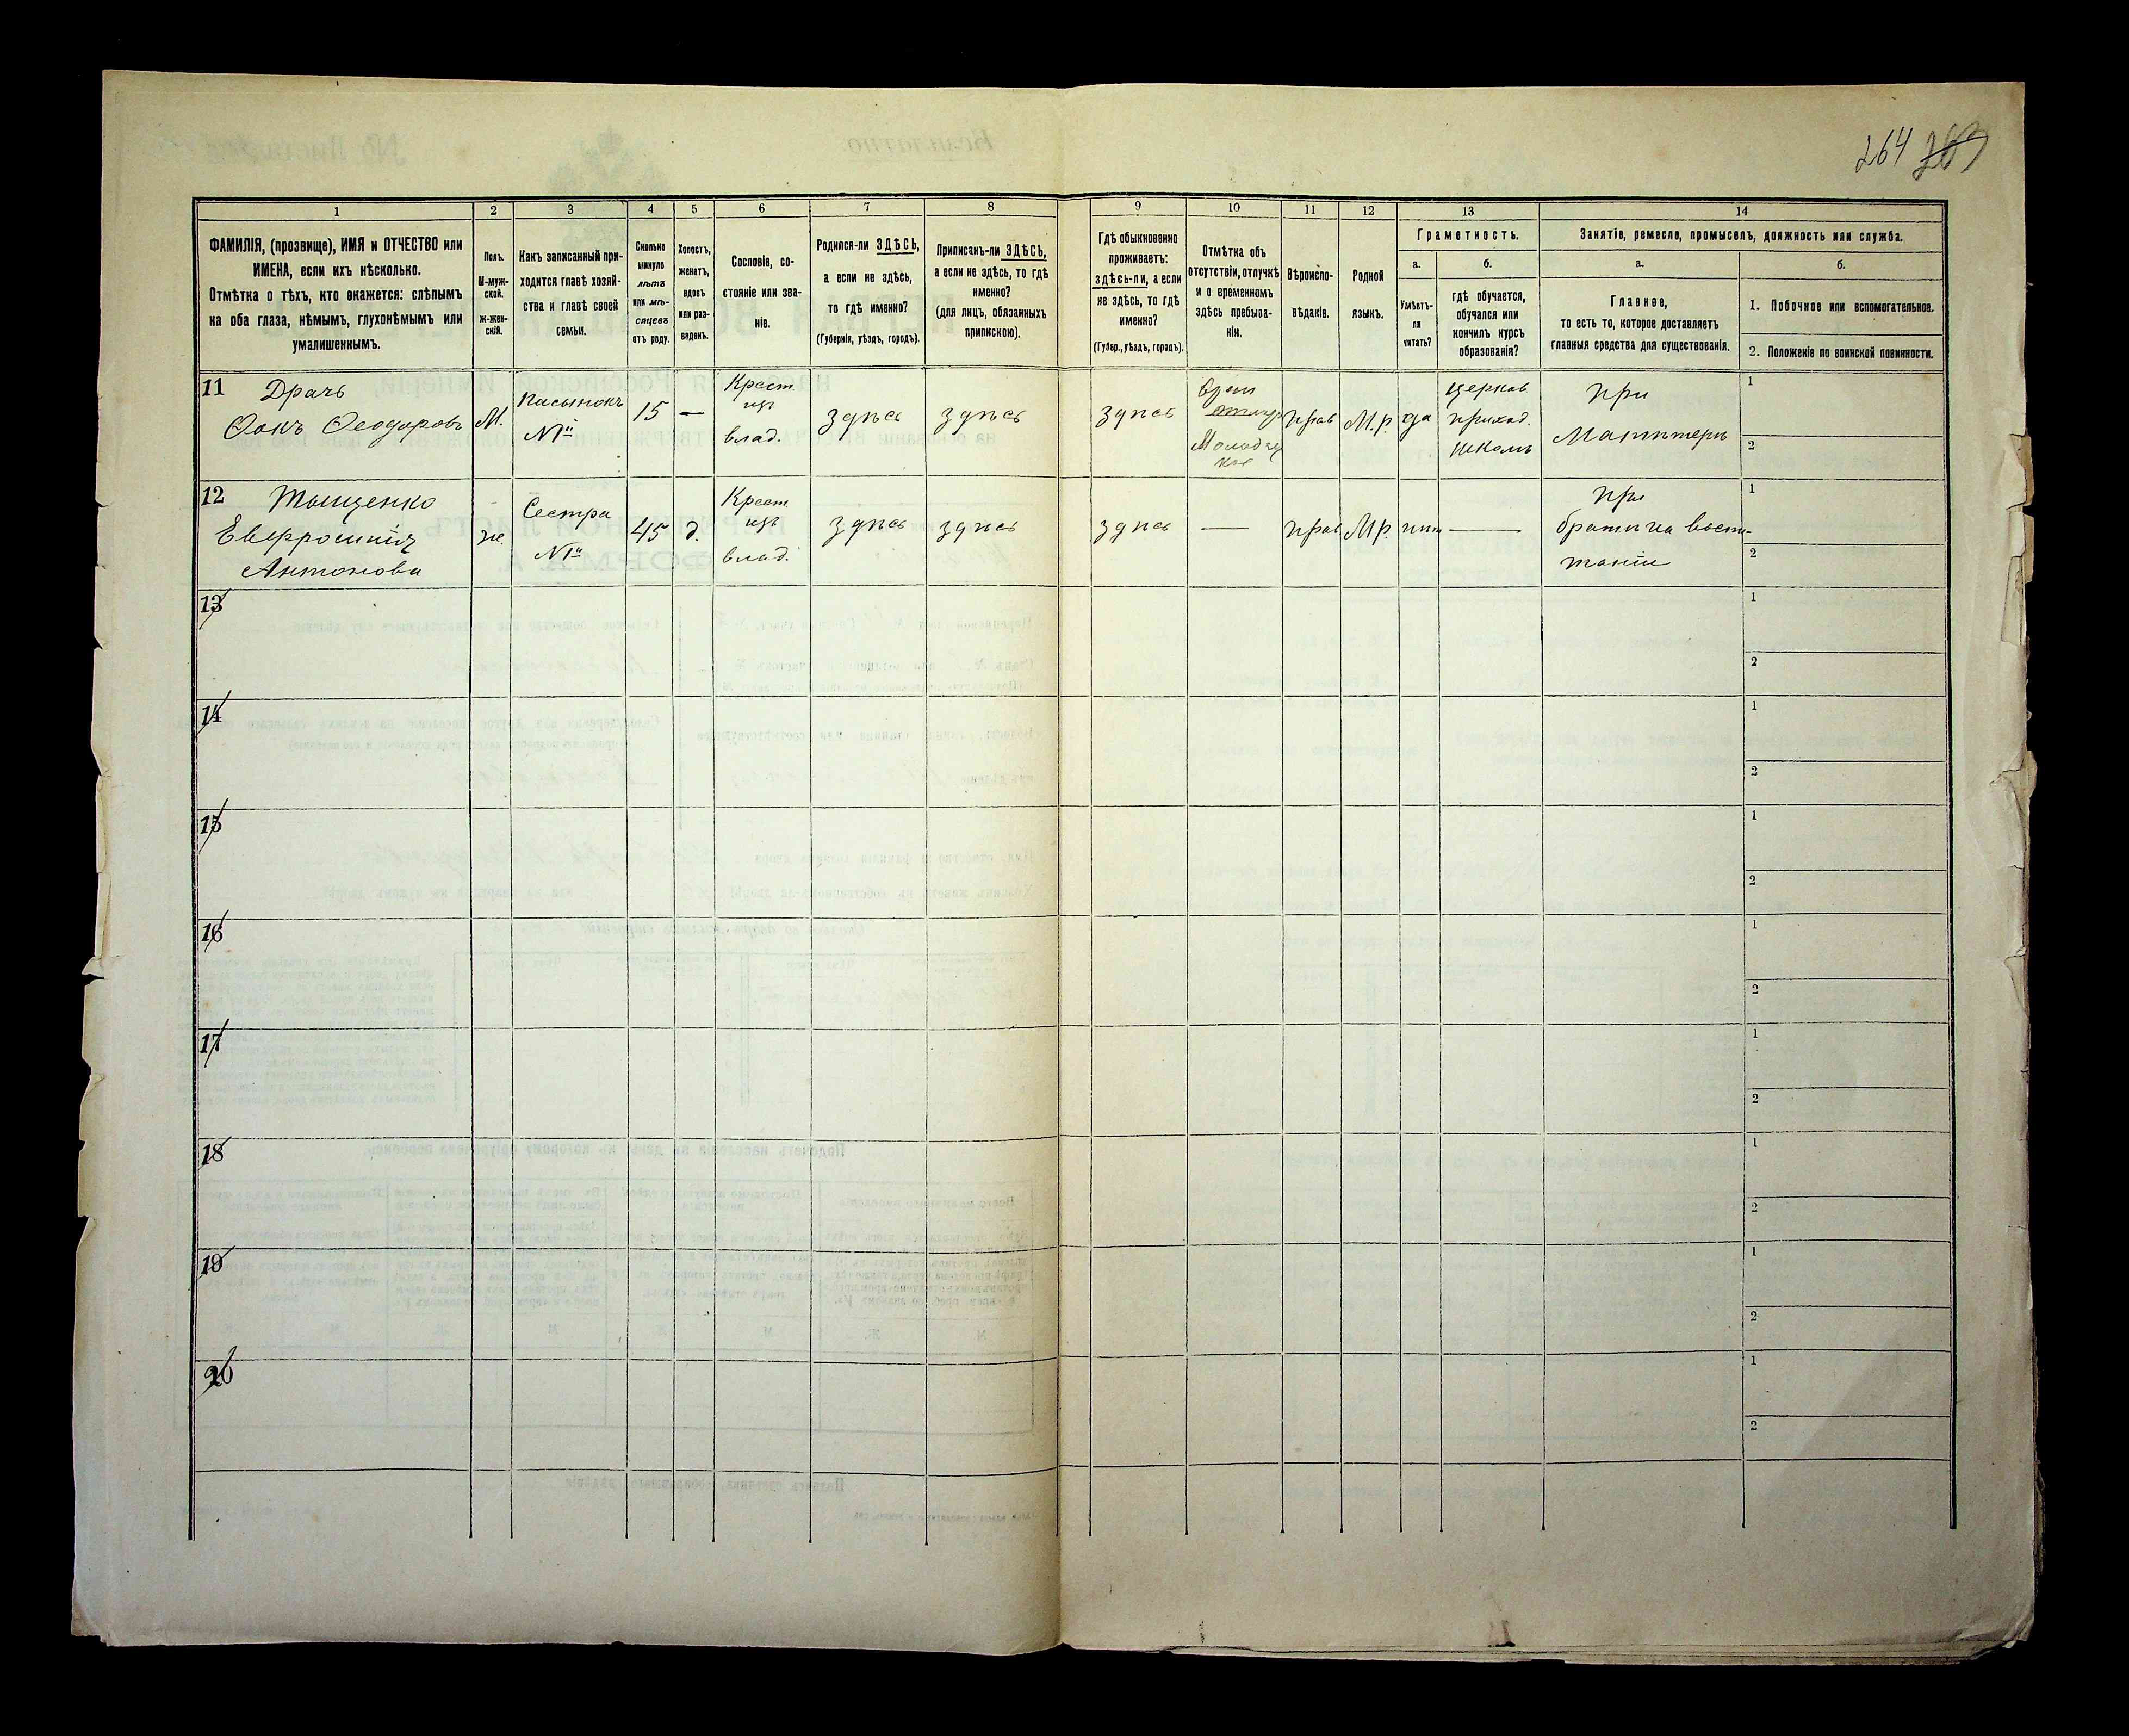 264 263
1 2 3 4 5 6 7 8 9 10 11 12 13 14
ФАМИЛІЯ, (прозвище), ИМЯ и ОТЧЕСТВО или
ИМЕНА, если ихъ нѣсколько.
Отмѣтка о тѣхъ, кто окажется: слѣпымъ
на оба глаза, нѣмымъ, глухонѣмымъ или
умалишеннымъ.
Полъ.
М-муж-
ской.
ж-жен-
скій.
Какъ записанный при-
ходится главѣ хозяй-
ства и главѣ своей
семьи.
Сколько
минуло
лѣтъ
или мѣ-
сяцевъ
отъ роду.
Холостъ,
женатъ,
вдовъ
или раз-
веденъ.
Сословіе, со-
стояніе или зва-
ніе.
Родился-ли ЗДѢСЬ,
а если не здѣсь,
то гдѣ именно?
(Губернія, уѣздъ, городъ).
Приписанъ-ли ЗДѢСЬ,
а если не здѣсь, то гдѣ
именно?
(для лицъ, обязанныхъ
припискою).
Гдѣ обыкновенно
проживаетъ:
здѣсь-ли, а если
не здѣсь, то гдѣ
именно?
(Губер., уѣздъ, городъ).
Отмѣтка объ
отсутствіи, отлучкѣ
и о временномъ
здѣсь пребыва-
ніи.
Вѣроиспо-
вѣданіе.
Родной
языкъ.
Грамотность.
а.
Умѣетъ-
ли
читать?
б.
гдѣ обучается,
обучался или
кончилъ курсъ
образованія?
Занятіе, ремесло, промыселъ, должность или служба.
а.
Главное,
то есть то, которое доставляетъ
главныя средства для существованія.
б.
1. Побочное или вспомогательное.
2. Положеніе по воинской повинности.
11 Драчь
Фокъ Феодоровъ
М.
Пасынокъ
№1й
15
—
Крест.
изъ
влад.
здѣсь
здѣсь
здѣсь
Врем
отлуч
прав
М.р.
да
церков.
приход.
школѣ
при
Маттери
1
2
12 Тыщенко
Евфросинія
Антонова
же.
Сестра
№1й
45
д.
Крест.
изъ
влад.
здѣсь
здѣсь
здѣсь
—
прав
М.р.
нѣт
—
при
братѣ на воспи-
таніи
1
2
13
1
2
14
1
2
15
1
2
16
1
2
17
1
2
18
1
2
19
1
2
20
1
2